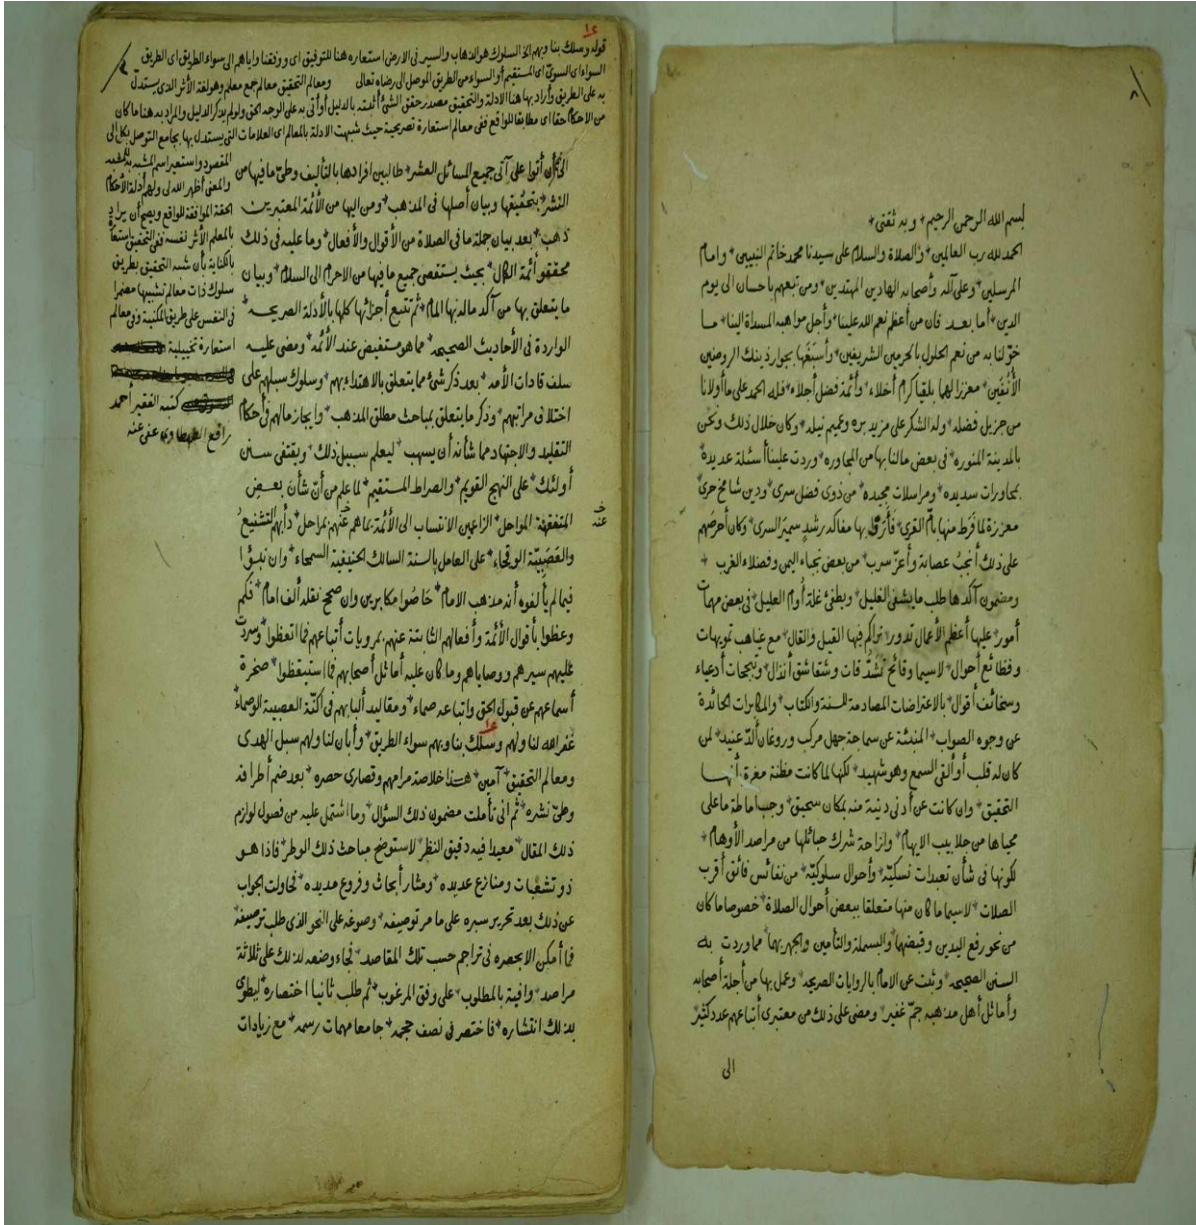 بسم الله الرحمن الرحيم * وبه ثقتي *
الحمد لله رب العالمين * والصلاة والسلام على سيدنا محمد خاتم النبيين * وامام
المرسلين * وعلى آله وأصحابه الهادين المهتدين * ومن تبعهم باحسان الى يوم
الدين * أما بعد فان من أعظم نعم الله علينا * وأجل مواهبه المسداة الينا * ما
خولنا به من نعم الحلول بالحرمين الشريفين * وأسبغها بجوار ذينك الروضين
الأنفين * معززا لهما بلقيا كرام أخلاء * وأئمة فضل أجلاء * فله الحمد على ما أولانا
من جزيل فضله * وله الشكر على مزيد بره وعميم نيله * وكان خلال ذلك ونحن
بالمدينة المنوره * في بعض مالنا بها من المجاوره * وردت علينا أسئلة عديدة
بمحاورات سديده * ومراسلات مجيده * من ذوى فضل سرى * ودين شامخ حرى *
معززة لما فرط منها بأم القرى * سمير السرى * وكان أحرصهم
على ذلك أنجب عصابة وأعز سرب * من بعض نجباء اليمن وفضلاء الغرب *
ومضمون آكدها طلب ما يشفى الغليل * ويطفئ غلة أوام العليل * في بعض مهمات
أمور * عليها أعظم الأعمال تدور * تراكم فيها القيل والقال * مع غياهب تمويهات
وفظائع أحوال * لاسيما وقائح تشدقات وشقاشق أنذال * وبجحات أدعياء
وسخائف أقوال * بالاعتراضات المصادمة للسنة والكتاب * والمكابرات الحائدة
عن وجوه الصواب * المنبئة عن سماجة جهل مركب وروغان ألد عنيد * لمن
كان له قلب أو ألقى السمع وهو شهيد * لكنها لما كانت مظنة معرة أنها
التحقيق * وان كانت عن أدنى دنية منه بمكان سحيق * وجب اماطة ما على
محياها من جلابيب الايهام * وازاحة شرك حبائلها من مراصد الأوهام *
لكونها في شأن تعبدات نسكيّة * وأحوال سلوكيّة * من نفائس فائق أقرب
الصلات * لاسيما ما كان منها متعلقا ببعض أحوال الصلاة * خصوصا ما كان
من نحو رفع اليدين وقبضهما * والبسملة والتأمين والجهر بهما * مما وردت به
السنن الصحيحه * وثبت عن الامام بالروايات الصريحه * وعمل بها من أجلة أصحابه
وأماثل أهل مذهبه جمّ غفير * ومضى على ذلك من معتبرى أتباعهم عدد كثير *
الى
١٤
قوله وسلك بنا وبهم الخ السلوك هو الذهاب والسير فى الارض استعاره هنا للتوفيق اى ووفقنا واياهم الى سواء الطريق اى الطريق
السواء اى السويّ اى المستقيم أو السواء من الطريق الموصل الى رضاه تعالى ومعالم التحقيق معالم جمع معلم وهو لغة الأثر الذى يستدلّ
به على الطريق وأراد بها هنا الادلة والتحقيق مصدر حقق الشئ أثبته بالدليل أو أتى به على الوجه الحق ولو لم يذكر الدليل والمراد به هنا ما كان
من الاحكام حقا اى مطابقا للواقع ففى معالم استعارة تصريحية حيث شبهت الادلة بالمعالم اى العلامات التى يستدل بها بجامع التوصل بكل الى
المقصود واستعير اسم المشبه به للمشبه
والمعنى أظهر الله لى ولهم أدلة الأحكام
الحقة الموافقة للواقع ويصح أن يراد
بالمعلم الأثر نفسه ففى التحقيق استعارة
بالكناية بأن شبه التحقيق بطريق
سلوك ذات معالم تشبيها مضمرا
فى النفس على طريق المكنية وفى معالم
استعارة تخييلية
كتبه الفقير أحمد
رافع الطهطاوى عفى عنه
الى أن أتوا على آتى جميع المسائل العشر * طالبين افرادها بالتأليف وطىّ ما فيها من
النشر * بتحقيقها وبيان أصلها فى المذهب * ومن اليها من الأئمة المعتبرين
ذهب * بعد بيان جملة ما فى الصلاة من الأقوال والأفعال * وما عليه فى ذلك
محققو أئمة الكمال * بحيث يستقصى جميع ما فيها من الاحرام الى السلام * وبيان
ما يتعلق بها من آكد ماله بها المام * ثم تتبع أجزائها كلها بالأدلة الصريحه *
الواردة فى الأحاديث الصحيحه * مما هو مستفيض عند الأئمه * ومضى عليه
سلف قادات الأمه * بعد ذكر شئ مما يتعلق بالاهتداء بهم * وسلوك سبلهم على
اختلاف مراتبهم * وذكر ما يتعلق بمباحث مطلق المذهب * وايجاز مالهم وأحكام
التقليد والاجتهاد مما شأنه أن يسهب * ليعلم سبيل ذلك * ويقتفى سنن
أولئك * على النهج القويم * والصراط المستقيم * لما علم من أنّ شأن بعض
المتفقهة المواحل * الزاعمين الانتساب الى الأئمة بما هم عنهم بمراحل * دأبهم التشنيع
عنه
والعصبيّة الوقحاء * على العامل بالسنة السالك الحنيفية السمحاء * وان نبئوا
فيما لم يألفوه أنه مذهب الامام * خاضوا مكابرين وان صحح نقله ألف امام * فكم
وعظوا بأقوال الأئمة وأفعالهم الثابتة عنهم بمرويات أتباعهم فما اتعظوا * وسردت
عليهم سيرهم ووصاياهم وما كان عليه أماثل أصحابهم فما استيقظوا * صخرة
أسماعهم عن قبول الحق واتباعه صماء * ومقاليد ألبابهم فى أكنّة العصبية الوصماء
غفر الله لنا ولهم وسلك بنا وبهم سواء الطريق * وأبان لنا ولهم سبل الهدى
١٤
ومعالم التحقيق * آمين * هذا خلاصة مرامهم وقصارى حصره * بعد ضم أطرافه
وطىّ نشره * ثم انى تأملت مضمون ذلك السؤال * وما اشتمل عليه من فصول لوازم
ذلك المقال * معيدا فيه دقيق النظر * لاستوضح مباحث ذلك الوطر * فاذا هو
ذو تشعبات ومنازع عديده * ومثار أبحاث وفروع مديده * فحاولت الجواب
عن ذلك بعد تحرير سبره على ما مر توصيفه * وصوغه على النحو الذى طلب ترصيفه *
فما أمكن الا بحصره فى تراجم حسب تلك المقاصد * فجاء وضعه لذلك على ثلاثة
مراصد * وافية بالمطلوب * على وفق المرغوب * ثم طلب ثانيا اختصاره * ليطوى
بذلك انتشاره * فاختصر فى نصف حجمه * جامعا مهمات رسمه * مع زيادات